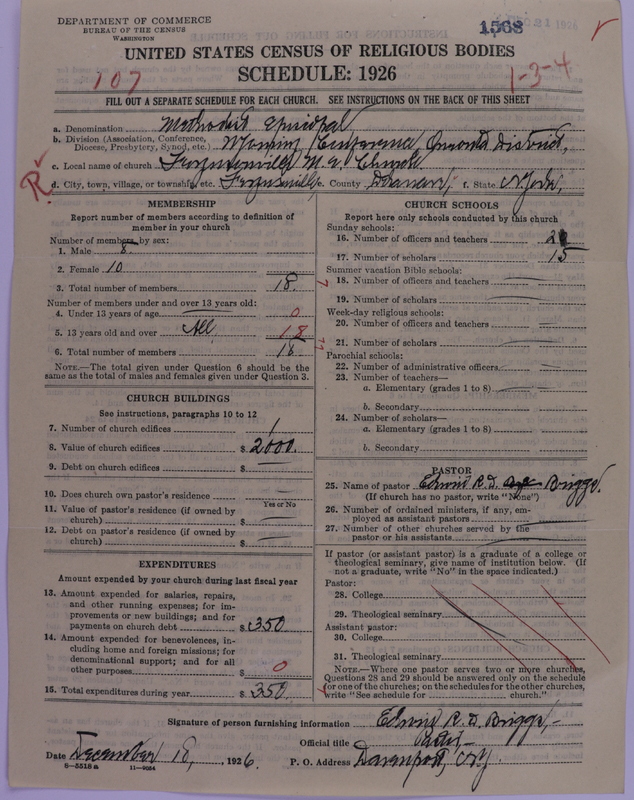 DEPARTMENT OF COMMERCE
BUREAU OF THE CENSUS
WASHINGTON
1568
UNITED STATES CENSUS OF RELIGIOUS BODIES
SCHEDULE: 1926
107
1-3-4
FILL OUT A SEPARATE SCHEDULE FOR EACH CHURCH. SEE INSTRUCTIONS ON THE BACK OF THIS SHEET
a. Denomination Methodist Episcopal
b. Division (Association, Conference, Diocese, Presbytery, Synod, etc.) Wyoming Conference, Oneonta District,
c. Local name of church Fergusonville M. E. Church
d. City, town, village, or township, etc. Fergusonville e. County Delaware, f. State N. York,
R
MEMBERSHIP
Report number of members according to definition of member in your church
Number of members by sex:
1. Male 8
2. Female 10
3. Total number of members 18
Number of members under and over 13 years old:
4. Under 13 years of age 0
5. 13 years old and over All 18
6. Total number of members 18
NOTE.—The total given under Question 6 should be the same as the total of males and females given under Question 3.
CHURCH BUILDINGS
See instructions, paragraphs 10 to 12
7. Number of church edifices 1
8. Value of church edifices $ 2000.
9. Debt on church edifices $
10. Does church own pastor's residence
Yes or No
11. Value of pastor's residence (if owned by church) $
12. Debt on pastor's residence (if owned by church) $
EXPENDITURES
Amount expended by your church during last fiscal year
13. Amount expended for salaries, repairs, and other running expenses; for improvements or new buildings; and for payments on church debt $ 350.
14. Amount expended for benevolences, including home and foreign missions; for denominational support; and for all other purposes $ 0
15. Total expenditures during year $ 350.
CHURCH SCHOOLS
Report here only schools conducted by this church
Sunday schools:
16. Number of officers and teachers 2
17. Number of scholars 15
Summer vacation Bible schools:
18. Number of officers and teachers
19. Number of scholars
Week-day religious schools:
20. Number of officers and teachers
21. Number of scholars
Parochial schools:
22. Number of administrative officers
23. Number of teachers—
a. Elementary (grades 1 to 8)
b. Secondary
24. Number of scholars—
a. Elementary (grades 1 to 8)
b. Secondary
PASTOR
25. Name of pastor Edwin R. D. Briggs.
(If church has no pastor, write "None")
26. Number of ordained ministers, if any, employed as assistant pastors
27. Number of other churches served by the pastor or his assistants
If pastor (or assistant pastor) is a graduate of a college or theological seminary, give name of institution below. (If not a graduate, write "No" in the space indicated.)
Pastor:
28. College
29. Theological seminary
Assistant pastor:
30. College
31. Theological seminary
NOTE.—Where one pastor serves two or more churches, Questions 28 and 29 should be answered only on the schedule for one of the churches; on the schedules for the other churches, write "See schedule for church."
Signature of person furnishing information Edwin R. D. Briggs,
Official title Pastor,
Date December 18, 1926. P. O. Address Davenport, N.Y.
6—5518 a 11—9034